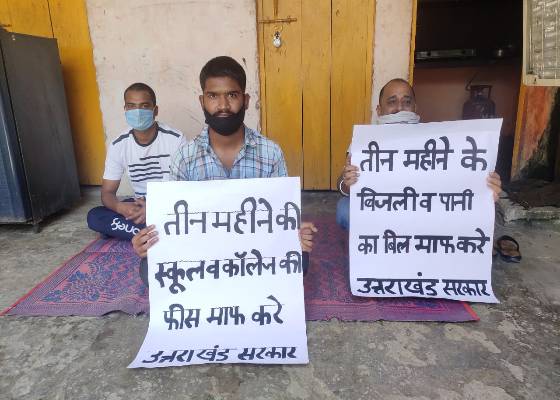 तीन महीने की
स्कूल व कॉलेज की
फीस माफ करे
उत्तराखंड सरकार
तीन महीने के
बिजली व पानी
का बिल माफ करे
उत्तराखंड सरकार